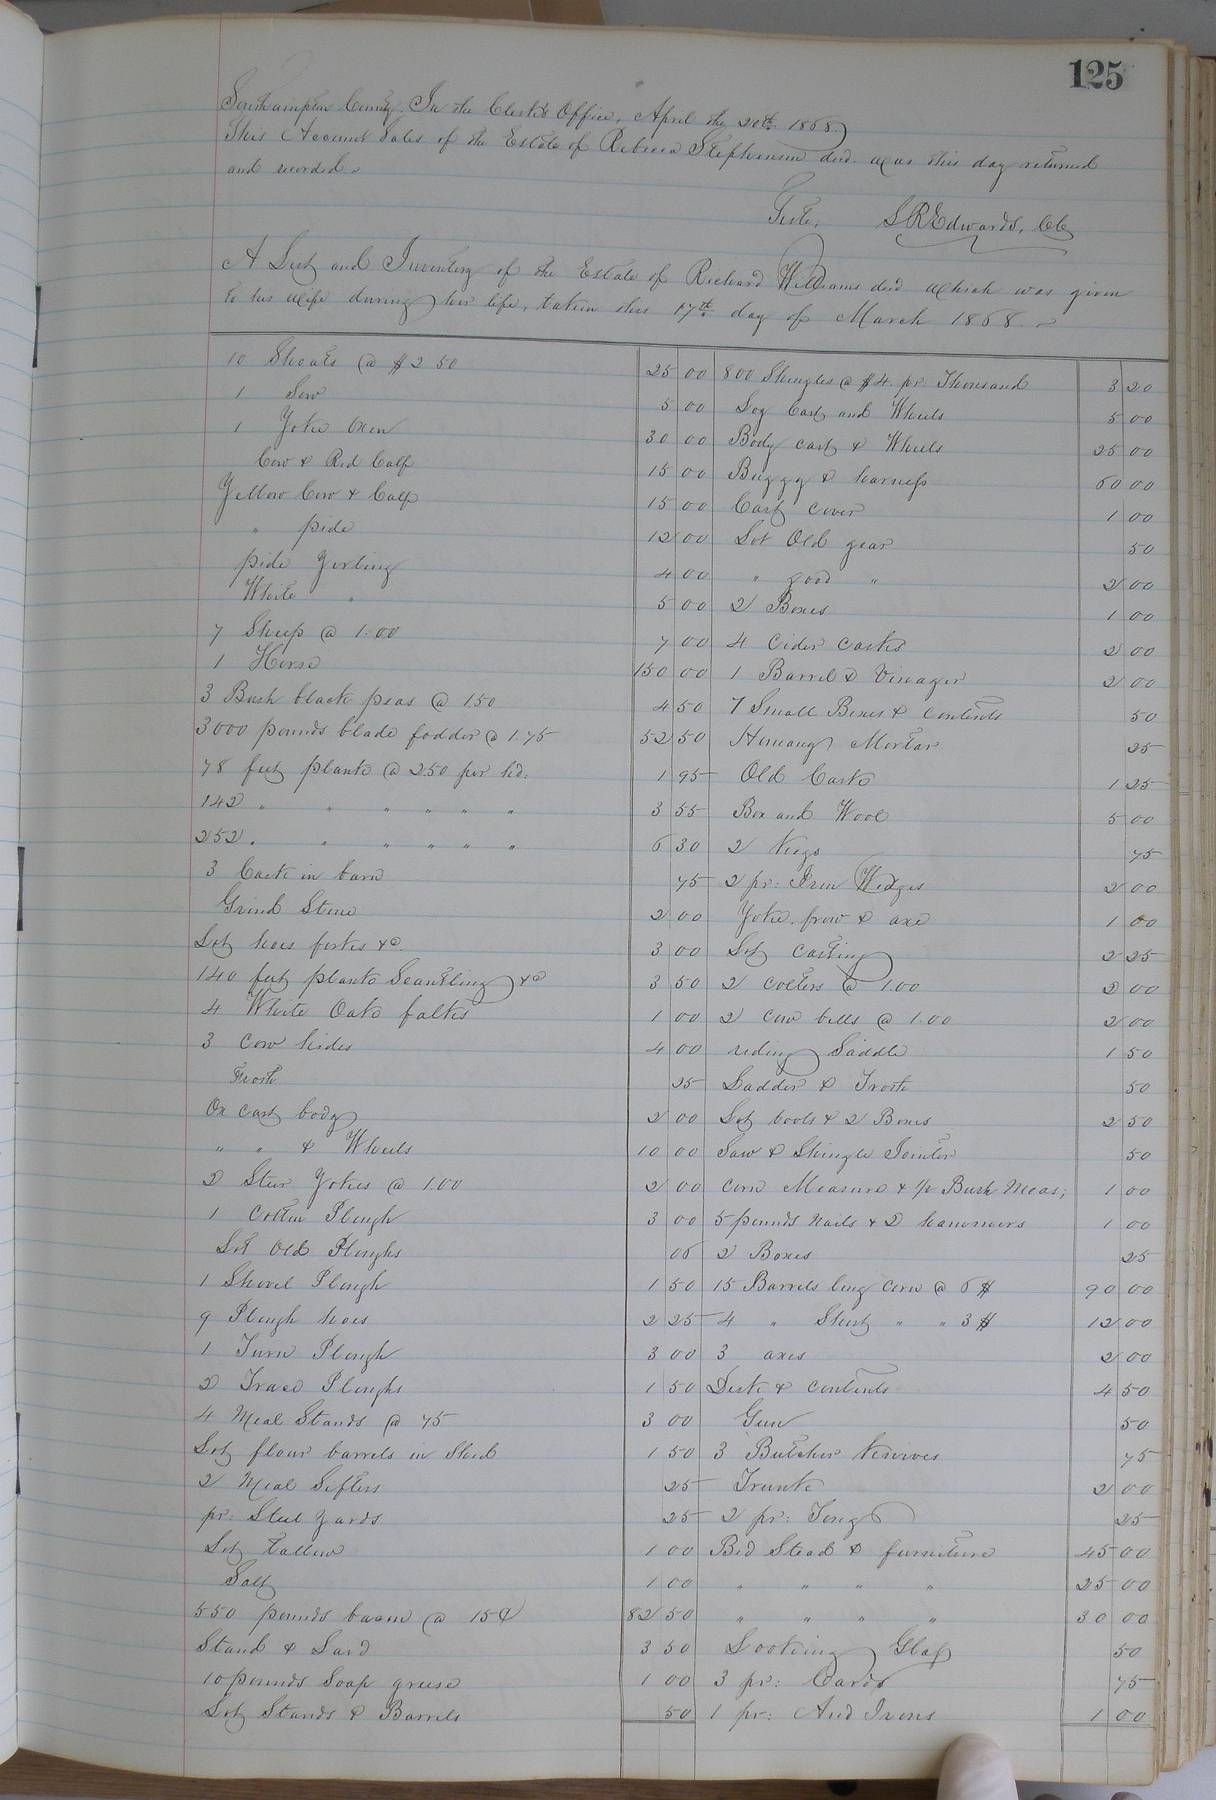 125
Southampton County. In the Clerk's Office, April the 20th 1868.
This Account Sales of the Estate of Rebecca Stephenson decd. was this day returned
and recorded.
Teste, S R Edwards, CC
A List and Inventory of the Estate of Richard Williams decd which was given
to his wife during her life, taken this 17th day of March 1868.
10 Shoats @ $2 50 25 00
1 Sow 5 00
1 Yoke Oxen 30 00
Cow & Red Calf 15 00
Yellow Cow & Calf 15 00
" pide 12 00
pide Yerling 4 00
White " 5 00
7 Sheep @ 1.00 7 00
1 Horse 150 00
3 Bush black peas @ 1.50 4 50
3000 pounds blade fodder @ 1.75 52 50
78 feet plank @ 2.50 per hd: 1 95
142 " " " " " " 3 55
252 " " " " " " 6 30
3 Cask in barn 75
Grind Stone 2 00
Lot hoes forks &c. 3 00
140 feet plank Scantling &c 3 50
4 White Oak 1 00
3 Cow hides 4 00
25
Ox cart body 2 00
" " & Wheels 10 00
2 Steer Yokes @ 1.00 2 00
1 Cotton Plough 3 00
Lot Old Ploughs 06
1 Shovel Plough 1 50
9 Plough hoes 2 25
1 Turn Plough 3 00
2 Trace Ploughs 1 50
4 Meal Stands @ 75 3 00
Lot flour barrels in Shed 1 50
2 Meal Sifters 25
pr: Steel Yards 25
Lot Tallow 1 00
Salt 1 00
550 pounds bacon @ 15¢ 82 50
Stand & Lard 3 50
10 pounds Soap grease 1 00
Lot Stands & Barrels 50
800 Shingles @ $4. pr. Thousand 3 20
Log Cart and Wheels 5 00
Body cart & Wheels 25 00
Buggy & harness 60 00
Cart cover 1 00
Lot Old gear 50
" good " 2 00
2 Boxes 1 00
4 Cider casks 2 00
1 Barrel & Vinager 2 00
7 Small Boxes & contents 50
Mortar 25
Old Cask 1 25
Box and Wool 5 00
2 Kegs 75
2 pr: Iron Wedges 2 00
Yoke, frow & axe 1 00
Lot casting 2 25
2 colters @ 1.00 2 00
2 cow bells @ 1.00 2 00
riding Saddle 1 50
Ladder & 50
Lot tools & 2 Boxes 2 50
Saw & Shingle Jointer 50
corn Measure & 1/2 Bush Meas; 1 00
5 pounds nails & 2 hammers 1 00
2 Boxes 25
15 Barrels long corn @ 6 $ 90 00
4 " Short " " 3 $ 12 00
3 axes 2 00
Desk & contents 4 50
Gun 50
3 Butcher Knives 75
Trunk 2 00
2 pr: Tongs 25
Bed Stead & furniture 45 00
" " " " 25 00
" " " " 30 00
Looking Glass 50
3 pr: Cards 75
1 pr: And Irons 1 00